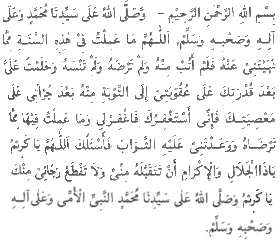 بِسْمِ اللهِ الرَّحْمٰنِ الرَّحِيْمِ - وَصَلَّى اللهُ عَلَى سَيِّدِنَا مُحَمَّدٍ وَعَلَى
آلِهِ وَصَحْبِهِ وَسَلَّمْ, اَللّٰهُمَّ مَا عَمِلْتُ فِيْ هٰذِهِ السَّنَةِ مِمَّا
نَهَيْتَنِيْ عَنْهُ فَلَمْ أَتُبْ مِنْهُ وَلَمْ تَرْضَهُ وَلَمْ تَنْسَهُ وَحَلُمْتَ عَلَيَّ
بَعْدَ قُدْرَتِكَ عَلَى عُقُوْبَتِيْ إِلَى التَّوْبَةِ مِنْهُ بَعْدَ جُرْأَتِيْ عَلَى
مَعْصِيَتِكَ فَإِنِّيْ أَسْتَغْفِرُكَ فَاغْفِرْلِيْ وَمَا عَمِلْتُ فِيْهَا مِمَّا
تَرْضَاهُ وَوَعَدْتَنِيْ عَلَيْهِ الثَّوَابَ فَأَسْئَلُكَ اَللّٰهُمَّ يَا كَرِيْمُ
يَاذَا الْجَلَالِ وَالْإِكْرَامِ أَنْ تَتَقَبَّلَهُ مِنِّيْ وَلَا تَقْطَعْ رَجَائِيْ مِنْكَ
يَا كَرِيْمُ وَصَلَّى اللهُ عَلَى سَيِّدِنَا مُحَمَّدٍ النَّبِيِّ الْأُمِّيِّ وَعَلَى آلِهِ
وَصَحْبِهِ وَسَلَّمْ.